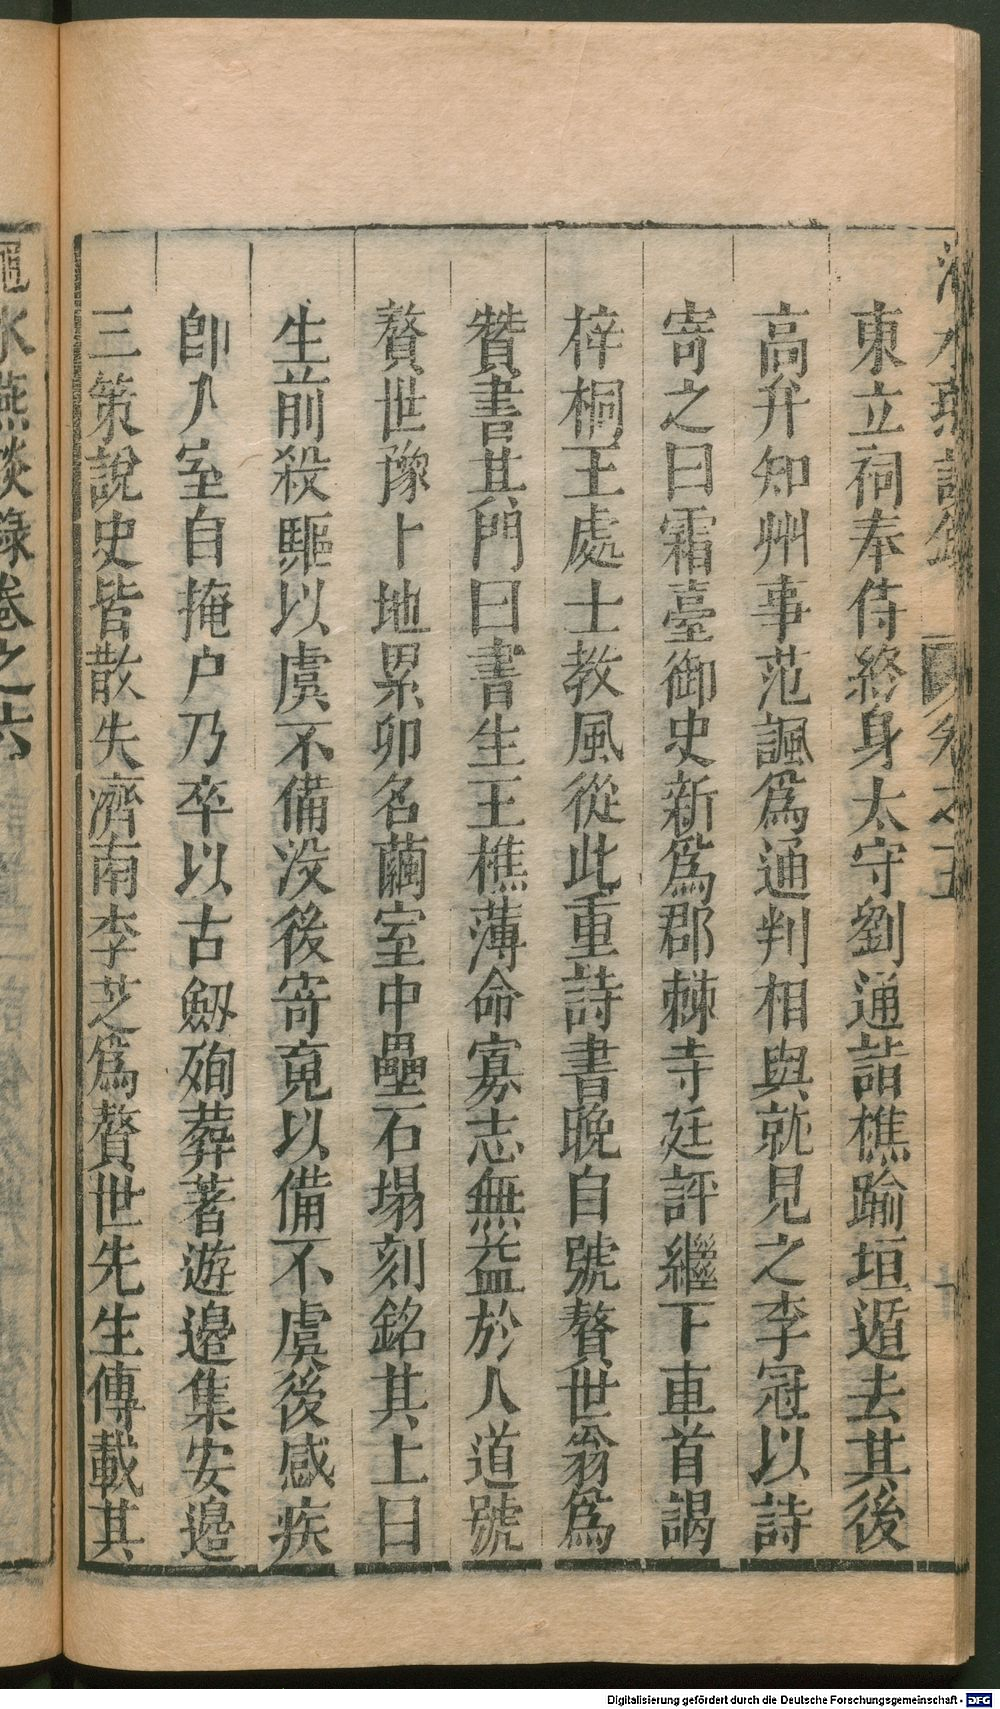 東立祠奉侍終身太守劉通詣樵踰垣遁去其後
高弁知州事范諷爲通判相與就見之李冠以詩
寄之曰霜臺御史新爲郡棘寺廷評繼下車首謁
梓桐王處士教風從此重詩書晚自號贅世翁爲
贊書其門曰書生王樵薄命寡志無益於人道號
贅世豫卜地累卯名繭室中壘石塌刻銘其上曰
生前殺軀以虞不備没後寄竟以備不虞後感疾
即入室自掩户乃卒以古劔殉葬著遊邊集安邊
三策說史皆散失濟南李芝爲贅世先生傳載其
澠水燕談錄卷之六
Digitalisierung gefördert durch die Deutsche Forschungsgemeinschaft - DFG